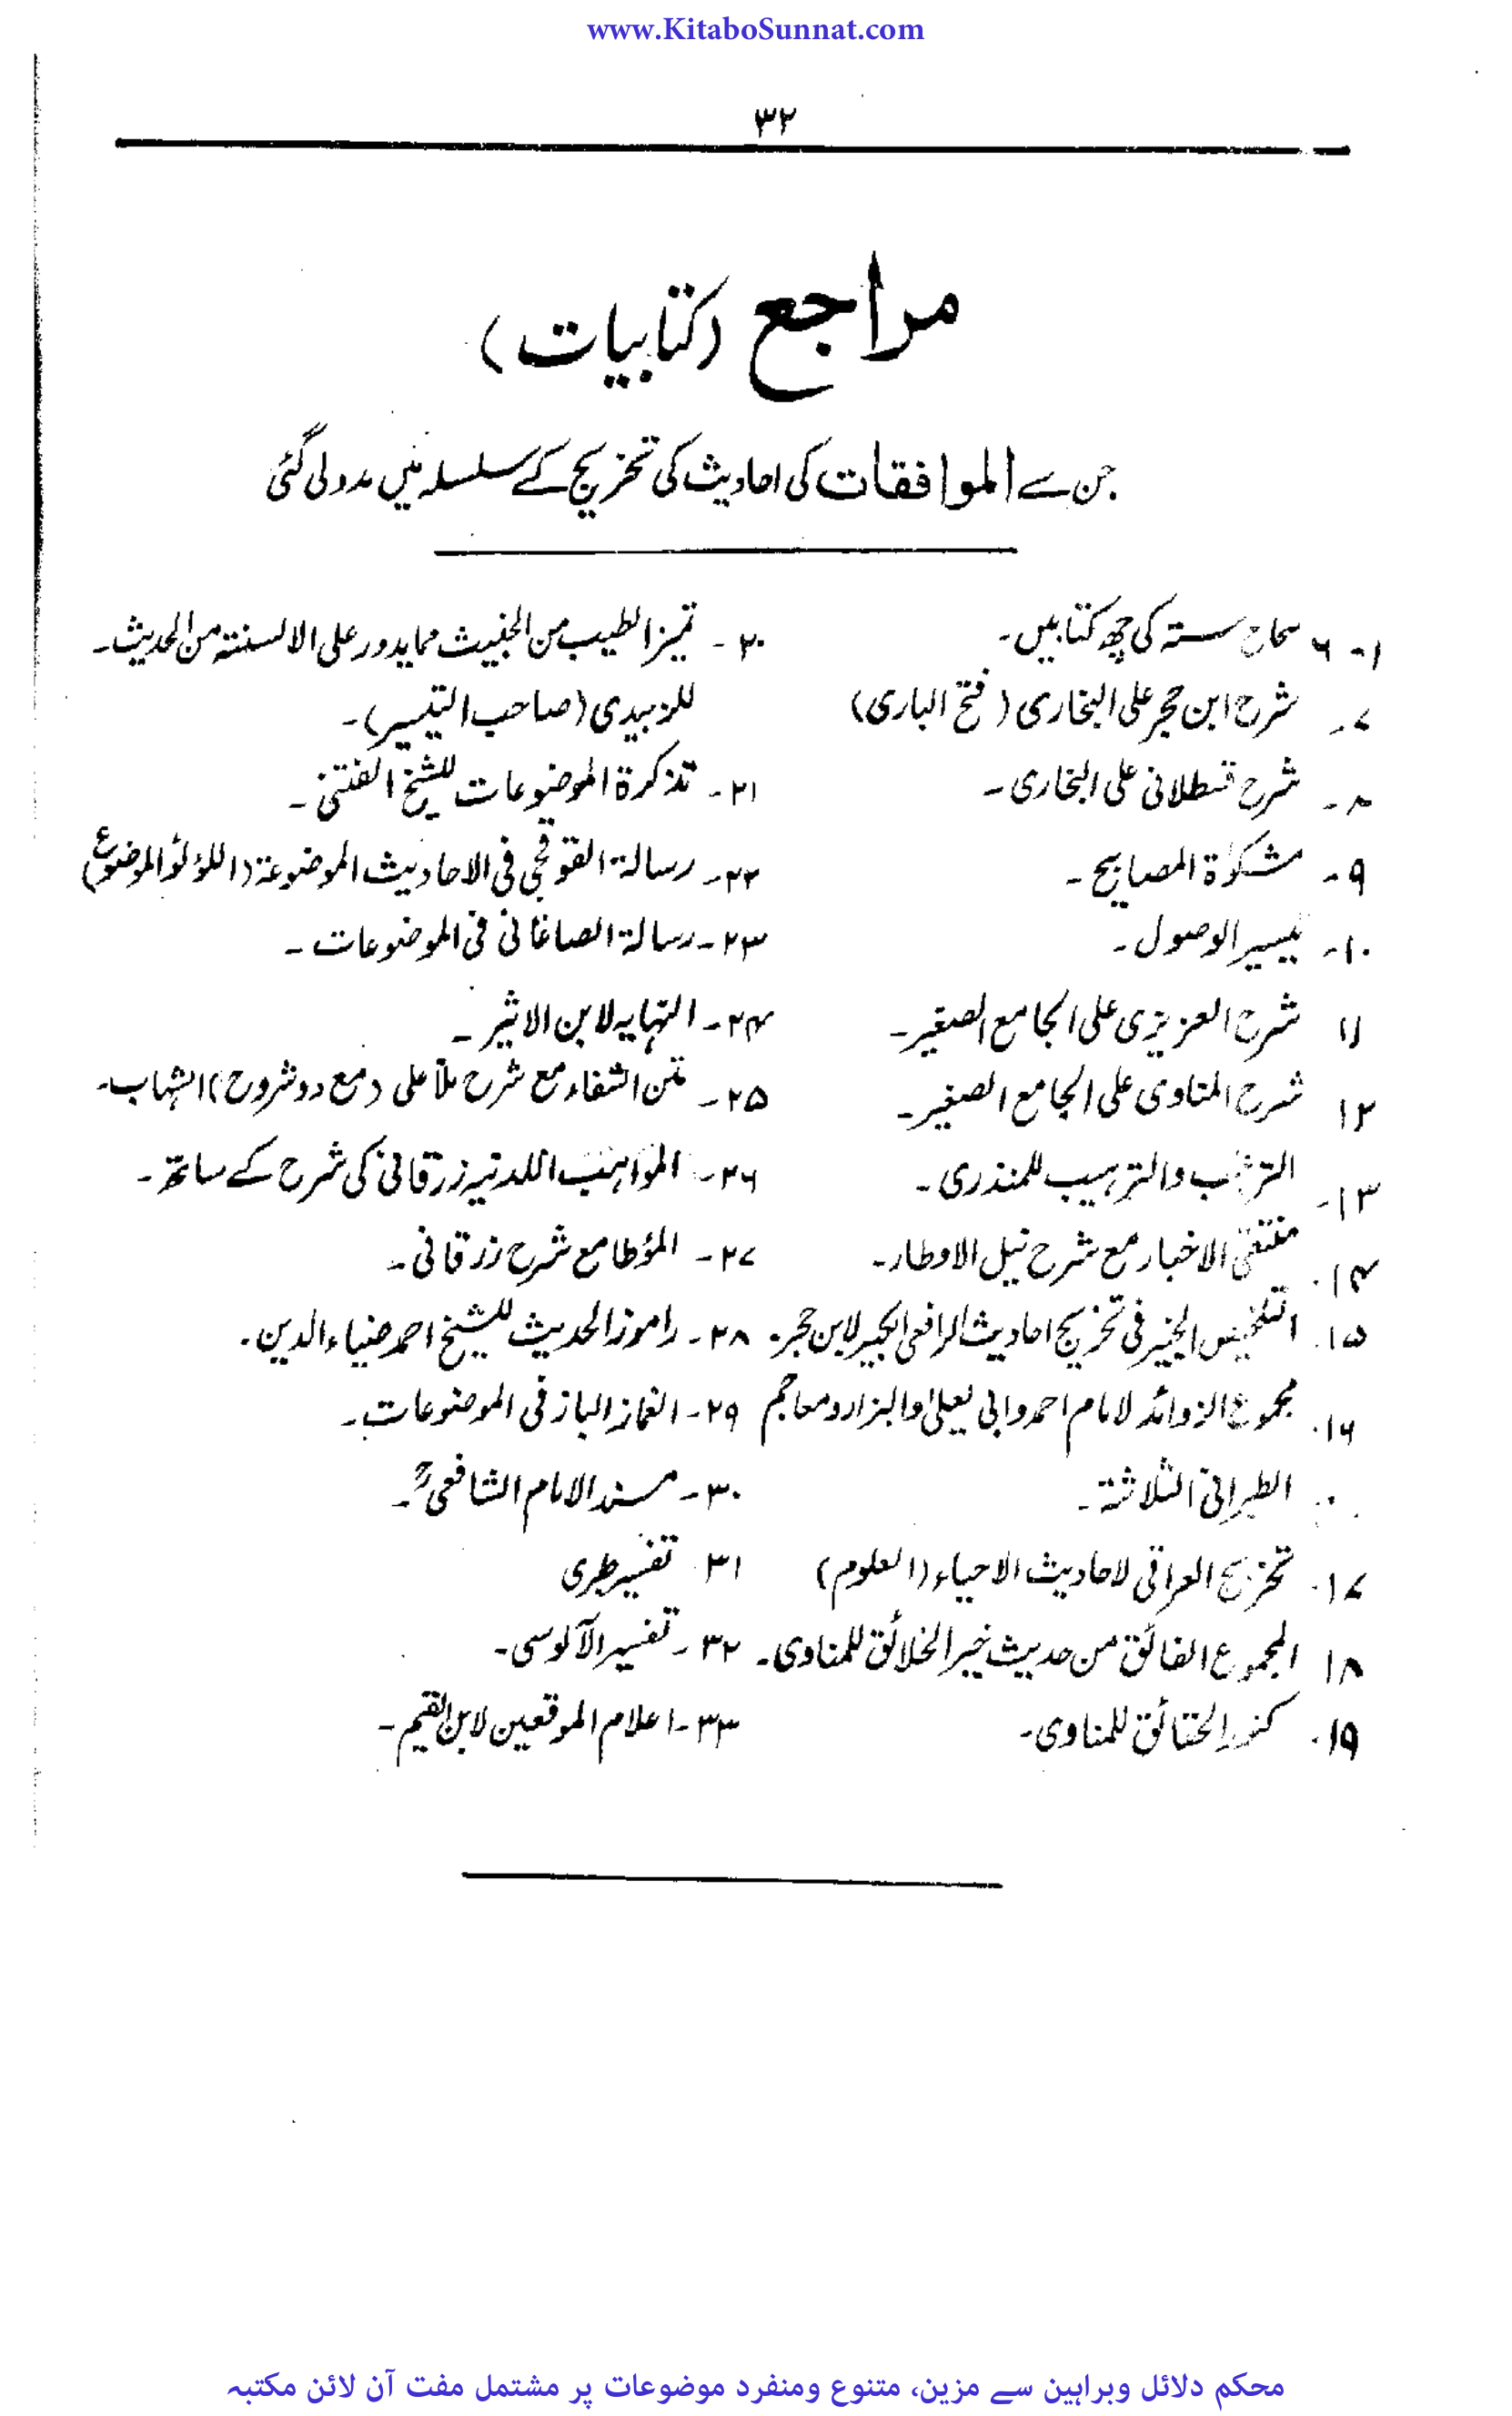 www.KitaboSunnat.com
۳۲
مراجع (کتابیات)
جن سے الموافقات کی احادیث کی تخریج کے سلسلہ میں مدد لی گئی
۱-۶ صحاح ستہ کی چھ کتابیں۔
۷۔ شرح ابن حجر علی البخاری (فتح الباری)
۸۔ شرح قسطلانی علی البخاری۔
۹۔ مشکوٰۃ المصابیح۔
۱۰۔ تیسیر الوصول۔
۱۱ شرح العزیزی علی الجامع الصغیر۔
۱۲ شرح المناوی علی الجامع الصغیر۔
۱۳۔ الترغیب والترہیب للمنذری۔
۱۴. منتقی الاخبار مع شرح نیل الاوطار۔
۱۵. التلخیص الخبیر فی تخریج احادیث الرافعی الکبیر لابن حجر۔
۱۶. مجموع الزوائد لامام احمد وابی یعلیٰ والبزار ومعاجم
الطبرانی الثلاثۃ۔
۱۷. تخریج العراقی لاحادیث الاحیاء (العلوم)
۱۸ المجموع الفائق من حدیث خیر الخلائق للمناوی۔
۱۹. کنوز الحقائق للمناوی۔
۲۰۔ تمیز الطیب من الخبیث مما یدور علی الالسنتہ من الحدیث۔
للزبیدی (صاحب التیسیر)۔
۲۱۔ تذکرۃ الموضوعات للشیخ الفتنی۔
۲۲۔ رسالۃ القوقجی فی الاحادیث الموضوعۃ (اللؤلؤ الموضوع)
۲۳۔ رسالۃ الصاغانی فی الموضوعات۔
۲۴۔ النہایہ لابن الاثیر۔
۲۵۔ متن الشفاء مع شرح ملا علی (مع دو شروح) الشہاب۔
۲۶۔ المواہب اللدنیہ زرقانی کی شرح کے ساتھ۔
۲۷۔ المؤطا مع شرح زرقانی۔
۲۸۔ راموز الحدیث للشیخ احمد ضیاء الدین۔
۲۹۔ الغماز الباز فی الموضوعات۔
۳۰۔ مسند الامام الشافعیؒ۔
۳۱. تفسیر طبری
۳۲۔ تفسیر الآلوسی۔
۳۳۔ اعلام الموقعین لابن القیم۔
محکم دلائل وبراہین سے مزین، متنوع ومنفرد موضوعات پر مشتمل مفت آن لائن مکتبہ